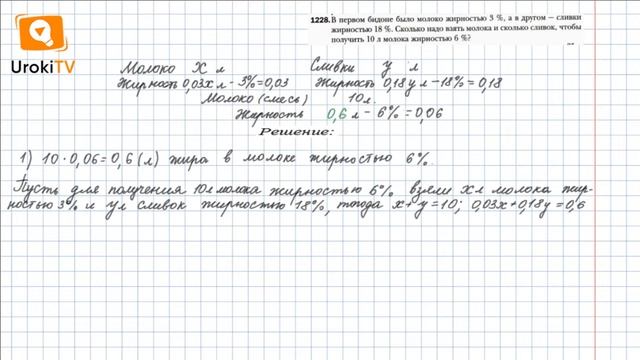 1228. В первом бидоне было молоко жирностью 3 %, а в другом – сливки
жирностью 18 %. Сколько надо взять молока и сколько сливок, чтобы
получить 10 л молока жирностью 6 %?
UrokiTV
Молоко х л Сливки у л
Жирность 0,03х л - 3% = 0,03 Жирность 0,18у л - 18% = 0,18
Молоко (смесь) 10л.
Жирность 0,6 л - 6% = 0,06
Решение:
1) 10 · 0,06 = 0,6 (л) жира в молоке жирностью 6%.
Пусть для получения 10л молока жирностью 6% взяли хл молока жир-
ностью 3% и ул сливок жирностью 18%, тогда х + у = 10; 0,03х + 0,18у = 0,6